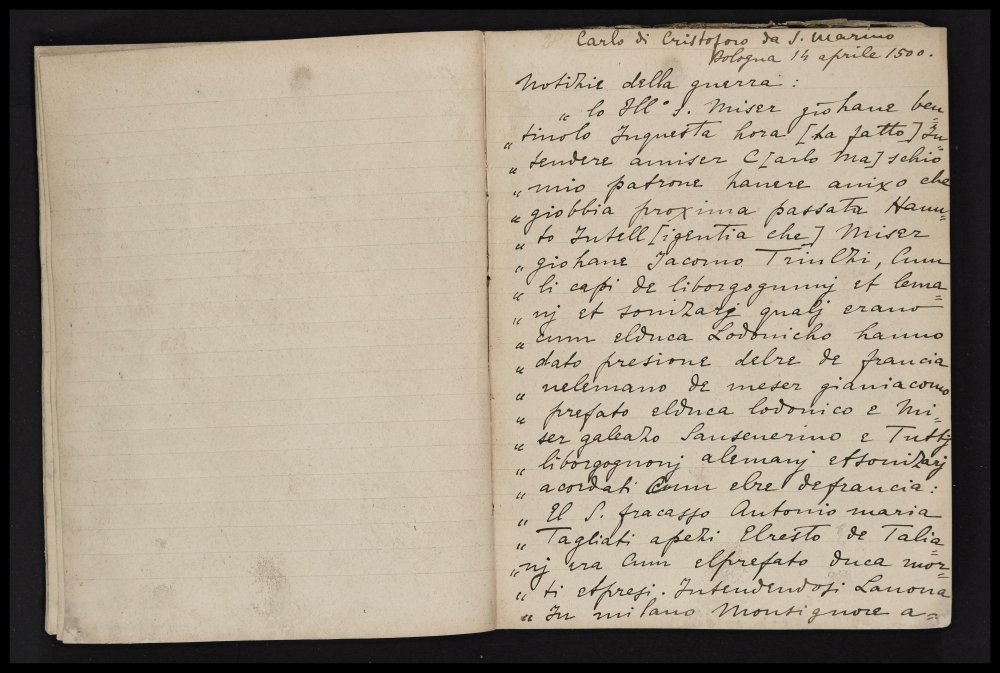 Carlo di Cristoforo da S. Marino
Bologna 14 aprile 1500.
Notizie della guerra :
" lo Ill° S. Miser giohane ben=
" tinolo Inquesta hora [ha fatto] In=
" tendere amiser C[arlo Ma] schio
" mio patrone havere avixo che
" giobbia proxima passata Havu=
" to Intell [igentia che] Miser
" giohane Jacomo Triulzi, Cum
" li capi de liborgognunj et lema=
" nj et sonizarj qualj erano
" cum elduca Lodovicho hanno
" dato presione delre de francia
" nelemano de meser gianiacomo
" prefato elduca lodovico e Mi=
" ser galeazo Sanseverino e Tuttj
" liborgognonj alemanj etsonizarj
" acordati Cum elre defrancia :
" El S. fracasso Antonio maria
" Tagliati apezi Elresto de Talia=
" nj era Cum elprefato duca mor=
" ti etpresi. Intendendosi Lanova
" In milano Monsignore a=